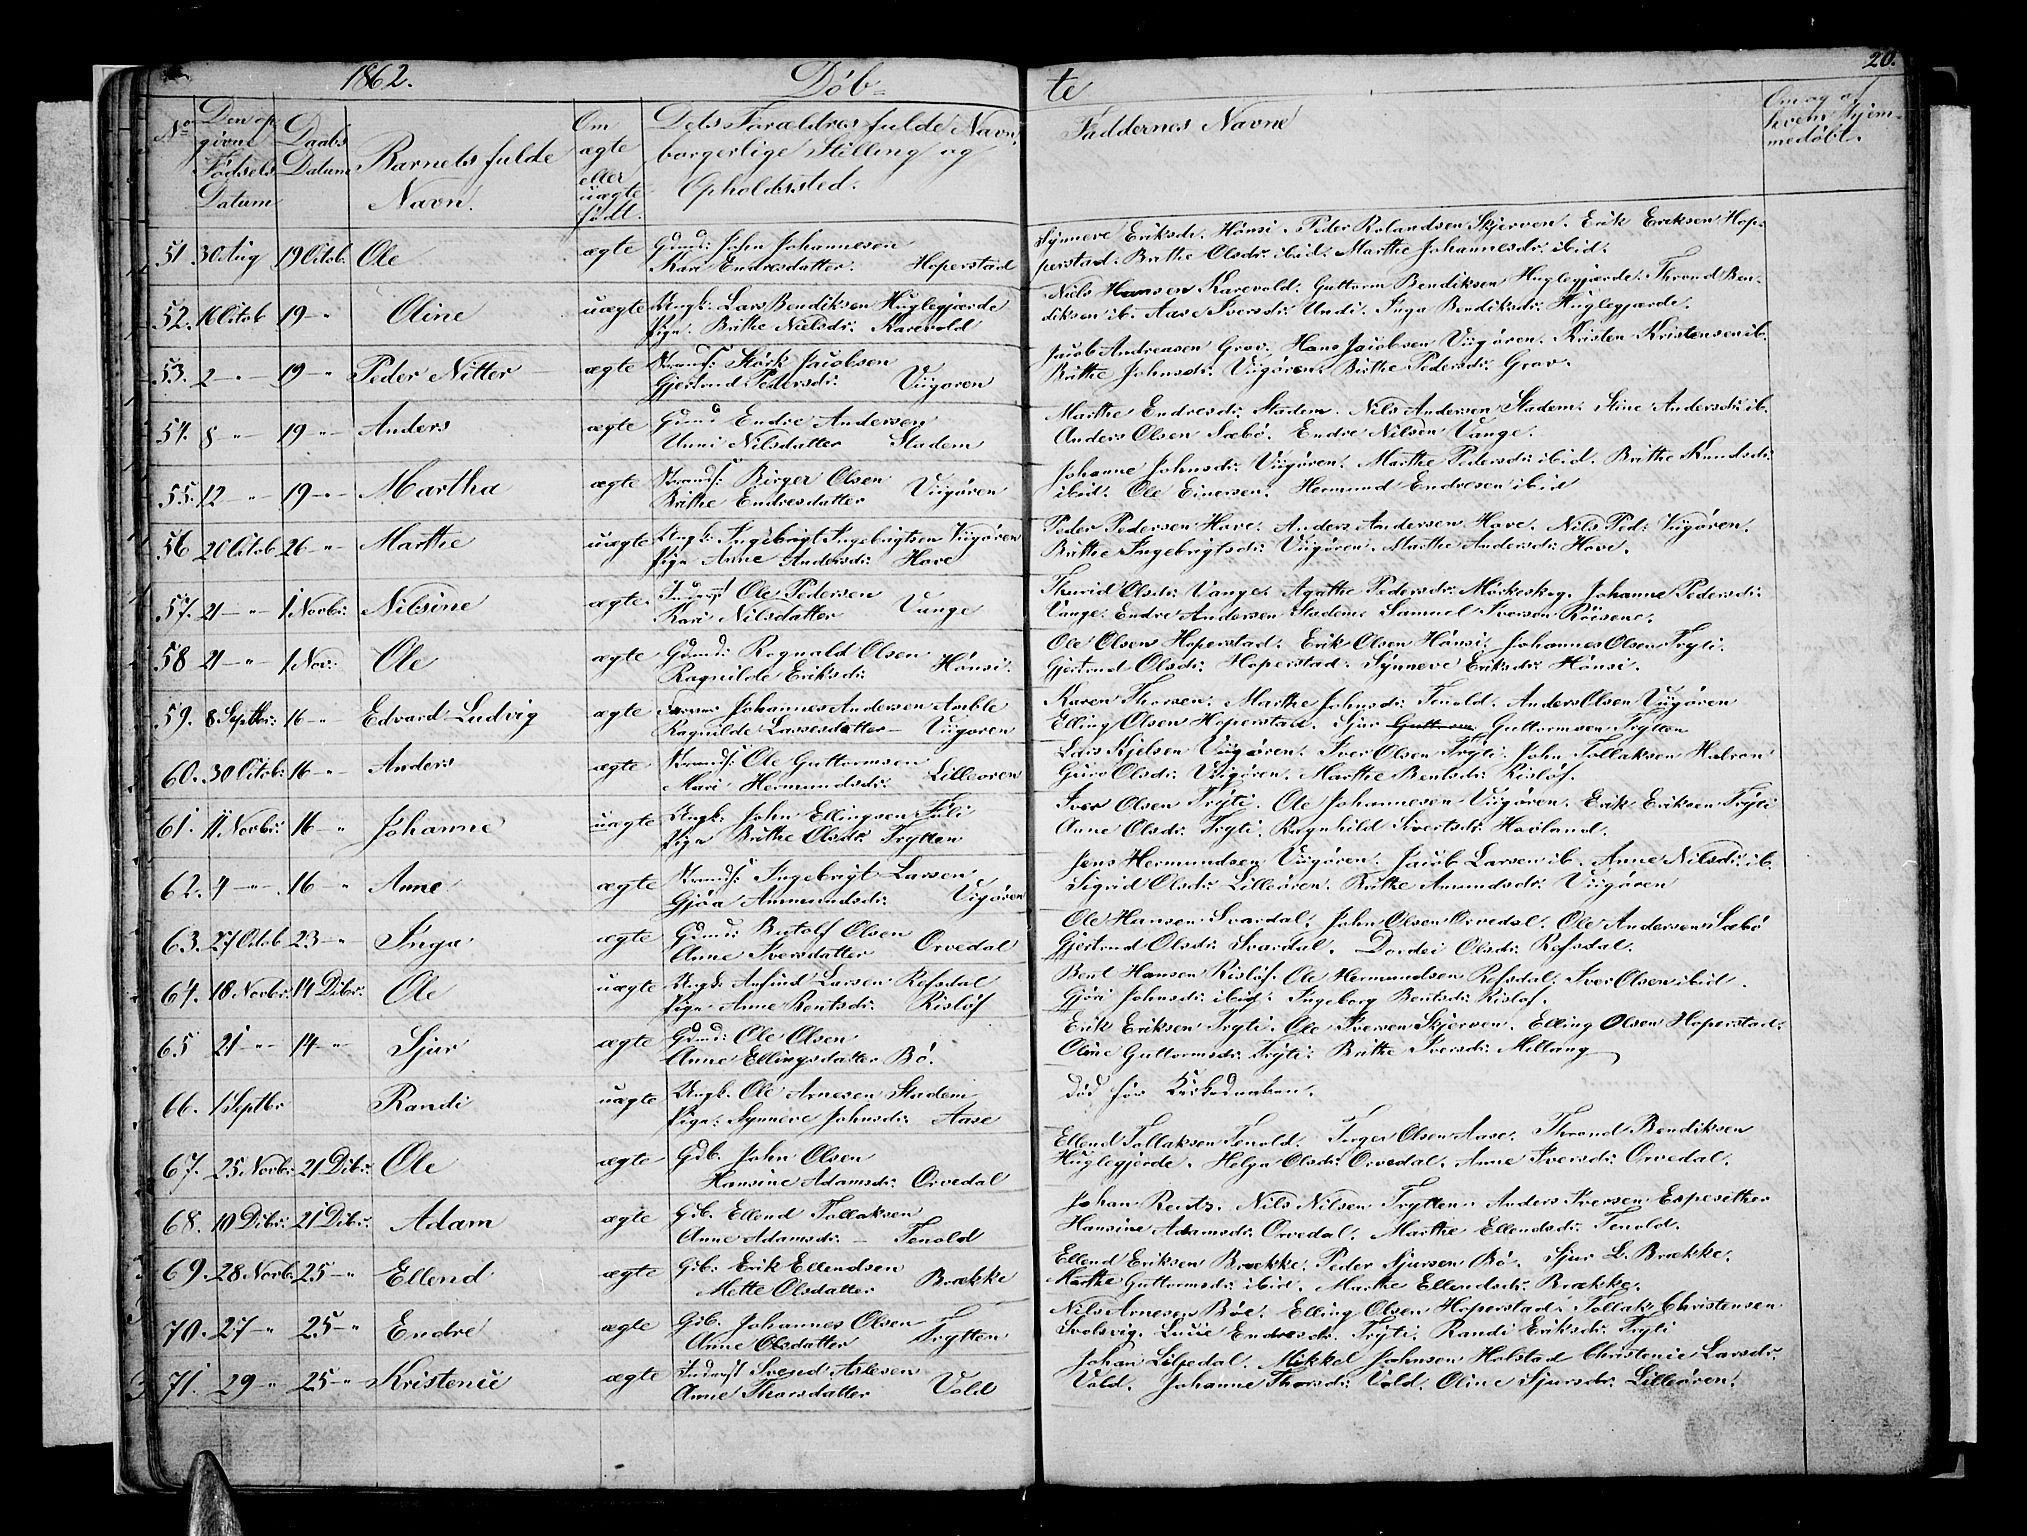 1862. Døb- te 20.
No Den op- givne Fødsels Datum Daabs Datum Barnets fulde Navn. Om ægte eller uægte født. Dets Forældres fulde Navn, borgerlige Stilling og Opholdssted. Faddernes Navne Om og af hvem hjem- medøbt.
51 30 Aug 19 Octob. Ole ægte Gmd: John Johannesen
Kari Endresdatter. Hoperstad
Synneve Eriksdr. Hønsi. Peder Rolandsen Skjerven. Erik Eriksen Hop-
perstad. Brithe Olsdr. ibid. Marthe Johannesdr: ibid.
52. 16 Octob 19 -"- Oline uægte Ungk: Lars Bendiksen Huglegjærde
Pige. Brithe Nielsdr: Karevold
Niels Hansen Karevold. Guttorm Bendiksen Huglegjærde. Thrond Ben-
diksen ib. Aase Iversdr: Undi. Inga Bendiksdr: Huglegjærde.
53. 2 -"- 19 -"- Peder Nitter ægte Strands: Størk Jacobsen
Gjertrud Pedersdr: Viigøren
Jacob Andreasen Grov. Hans Jacobsen Viigøren. Kristen Kristensen ib.
Brithe Johnsdr: Viigøren. Brithe Pedersdr: Grov.
54. 8 -"- 19 -"- Anders ægte Gmd Endre Andersen
Unni Nilsdatter Stadem
Marthe Endresdr: Stadem. Nils Andersen Stadem. Stine Andersdr: ib.
Anders Olsen Sæbø. Endre Nilsen Vange.
55. 12 -"- 19 -"- Martha ægte Strands: Birger Olsen
Brithe Endresdatter Viigøren
Johanne Johnsdr: Viigøren. Marthe Pedersdr: ibid. Brithe Knudsdr:
ibid. Ole Einersen. Hermund Endresen ibid
56 20 Octob 26 -"- Marthe uægte Ungk: Ingebrigt Ingebrigtsen Viigøren
Pige Anne Andersdr: Hove
Peder Pedersen Hove. Anders Andersen Hove. Nils Ped: Viigøren.
Brithe Ingebrigtsdr: Viigøren. Marthe Andersdr: Hove.
57. 21 -"- 1 Novbr: Nilsine ægte Inderst Ole Pedersen
Kari Nilsdatter Vange
Thurid Olsdr: Vange. Agathe Pedersdr: Mörkeskog. Johanne Pedersdr:
Vange. Endre Andersen Stadem. Samuel Iversen Röisene.
58 21 -"- 1 Nov: Ole ægte Gmd: Rognald Olsen
Ragnilde Eriksdr: Hønsi.
Ole Olsen Hoperstad. Erik Olsen Hønsi. Johannes Olsen Tryti.
Gjertrud Olsdr: Hoperstad. Synneve Eriksdr: Hønsi.
59. 8 Septbr: 16 -"- Edvard Ludvig ægte Johannes Andersen Amble
Ragnilde Lassesdatter - Viigøren
Karen Thorsen. Marthe Johnsdr: Tenold. Anders Olsen Viigøren
Elling Olsen Hoperstad. Sjur Guttormsen Trytten
60. 30 Octob: 16 -"- Anders ægte Strands: Ole Guttormsen
Mari Hermundsdr: Lilleøren
Lars Kjelsen Viigøren. Iver Olsen Tryti. John Tollaksen Halron
Guro Olsdr: Viigøren. Marthe Bentsdr: Risløf.
61. 11 Novbr: 16 -"- Johanne uægte Ungk: John Ellingsen Tuli
Pige Brithe Olsdr. Trytten
Iver Olsen Tryti. Ole Johannesen Viigøren. Erik Eriksen Tryti
Anne Olsdr: Tryti. Ragnhild Sivertsdr: Haoland.
62. 4 -"- 16 -"- Anne ægte Strands: Ingebrigt Larsen
Gjöa Ammundsdr: Vigøren
Jens Hermundsen Viigøren. Jacob Larsen ib. Anne Nilsdr: ib.
Sigrid Olsdr: Lilleøren. Brithe Amundsdr: Viigøren
63. 27 Octob 23 -"- Inga ægte Gdmd: Botolf Olsen
Anne Iversdatter Orvedal
Ole Hansen Svardal. John Olsen Orvedal. Ole Andersen Sæbø
Gjertrud Olsdr: Svardal. Dordei Olsdr: Refsdal.
64. 18 Novbr: 14 Dcbr: Ole uægte Ungk: Anfind Larsen Refsdal
Pige Anne Bentsdr: Risløf
Bent Hansen Risløf. Ole Hermundsen Refsdal. Iver Olsen ibid.
Gjöri Johnsdr: ibid. Ingeborg Bentsdr: Risløf.
65 21 -"- 14 -"- Sjur ægte Gdmd: Ole Olsen
Anne Ellingsdatter Bö.
Erik Eriksen Tryti. Ole Iversen Skjerven. Elling Olsen Hoperstad.
Oline Guttormsdr: Tryti. Brithe Iversdr: Millang
66. 1 Septbr Randi uægte Ungk. Ole Arnesen Stadem
Pige: Synneve Johnsdr: Aase
død før Kirkedaaben.
67. 25 Novbr: 21 Dcbr: Ole ægte Gdb. John Olsen
Hansine Adamsdr: Orvedal
Ellend Tollaksen Tenold. Torger Olsen Aase. Thrond Bendiksen
Huglegjerde. Helga Olsdr: Orvedal. Anne Iversdr: Orvedal.
68. 10 Dcbr: 21 Dcbr. Adam ægte Gb. Ellend Tollaksen
Anne Adamsdr: - Tenold
Johan Rentz. Nils Nilsen Trytten. Anders Iversen Espesether
Hansine Adamsdr: Orvedal. Marthe Ellendsdr: Tenold.
69. 28 Novb. 25 -"- Ellend ægte Gb: Erik Ellendsen
Mette Olsdatter Brække
Ellend Eriksen Brække. Peder Sjursen Bö. Sjur L. Brække.
Marthe Guttormsdr: ibid. Marthe Ellendsdr: Brække.
70. 27 -"- 25 -"- Endre ægte Gb. Johannes Olsen
Anne Olsdatter Trytten
Nils Arnesen Böe. Elling Olsen Hoperstad. Tollak Christensen
Svolsvig. Lucie Endresdr. Tryti. Randi Eriksdr: Tryti
71. 29 -"- 25 -"- Kristence ægte Inderst Svend Aslesen
Anne Thorsdatter Vold
Johan Liljedal. Mikkel Johnsen Holstad Christence Larsdr.
Vold. Johanne Thorsdr: Vold. Oline Sjursdr: Lilleören.